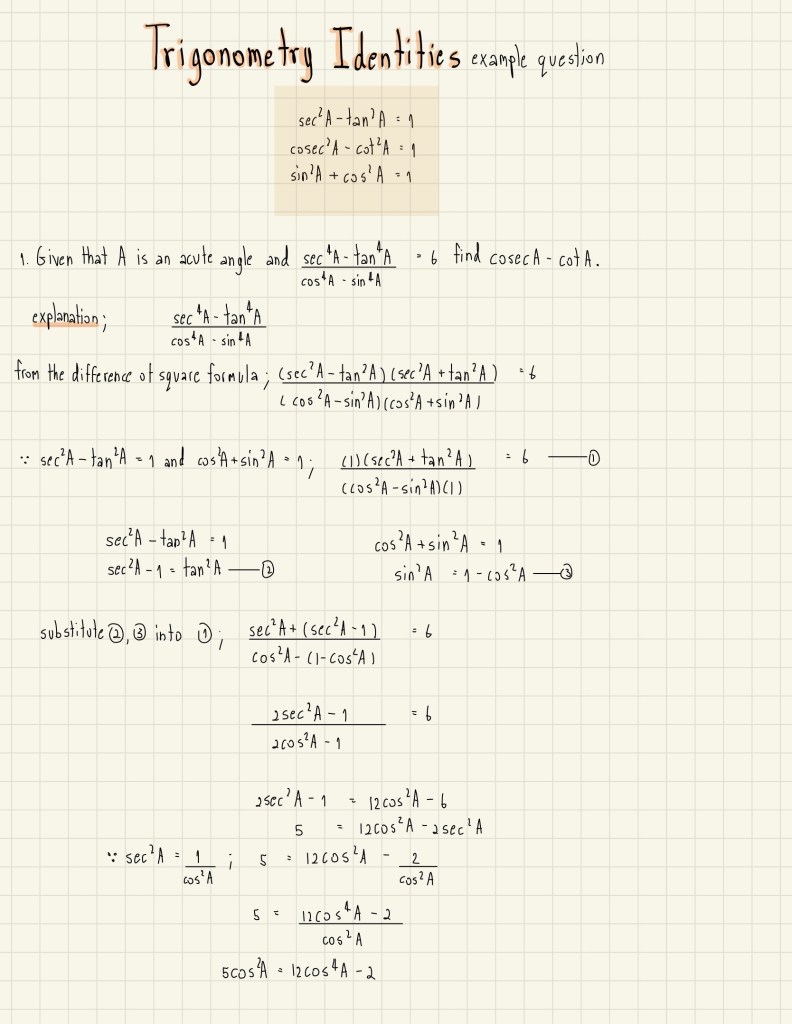 Trigonometry Identities example question
sec²A - tan²A = 1
cosec²A - cot²A = 1
sin²A + cos²A = 1
1. Given that A is an acute angle and (sec⁴A - tan⁴A)/(cos⁴A - sin⁴A) = 6 find cosecA - cotA.
explanation; (sec⁴A - tan⁴A)/(cos⁴A - sin⁴A)
from the difference of square formula; (sec²A - tan²A)(sec²A + tan²A)/(cos²A - sin²A)(cos²A + sin²A) = 6
∵ sec²A - tan²A = 1 and cos²A + sin²A = 1; (1)(sec²A + tan²A)/(cos²A - sin²A)(1) = 6 —①
sec²A - tan²A = 1 cos²A + sin²A = 1
sec²A - 1 = tan²A —② sin²A = 1 - cos²A —③
substitute ②, ③ into ①; sec²A + (sec²A - 1)/cos²A - (1 - cos²A) = 6
2sec²A - 1/2cos²A - 1 = 6
2sec²A - 1 = 12cos²A - 6
5 = 12cos²A - 2sec²A
∵ sec²A = 1/cos²A; 5 = 12cos²A - 2/cos²A
5 = 12cos⁴A - 2/cos²A
5cos²A = 12cos⁴A - 2